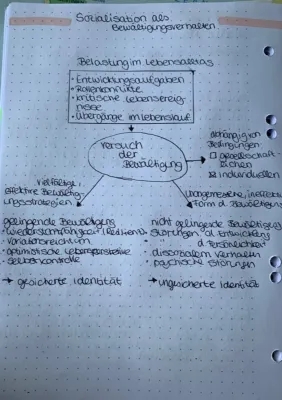 Sozialisation als
Bewältigungsverhalten
Belastung im Lebensalltag
• Entwicklungsaufgaben
• Rollenkonflikte
• kritische Lebensereig-
nisse
• Übergänge im Lebenslauf
Versuch
der
Bewältigung
abhängig von
Bedingungen
gesellschaft-
lichen
individuellen
vielfältige,
effektive Bewältig-
ungsstrategien
unangemessene, ineffekt.
Form d. Bewältigung
gelingende Bewältigung
• Widerstandsfähigkeit
• Variationsreichtum
• optimistische Lebensstrategie
• Selbstkontrolle
→ gesicherte Identität
nicht gelingende Bewältigung
• Störungen d. Entwicklung
" d. Persönlichkeit
• dissoziales Verhalten
• psychische Störungen
→ ungesicherte Identität